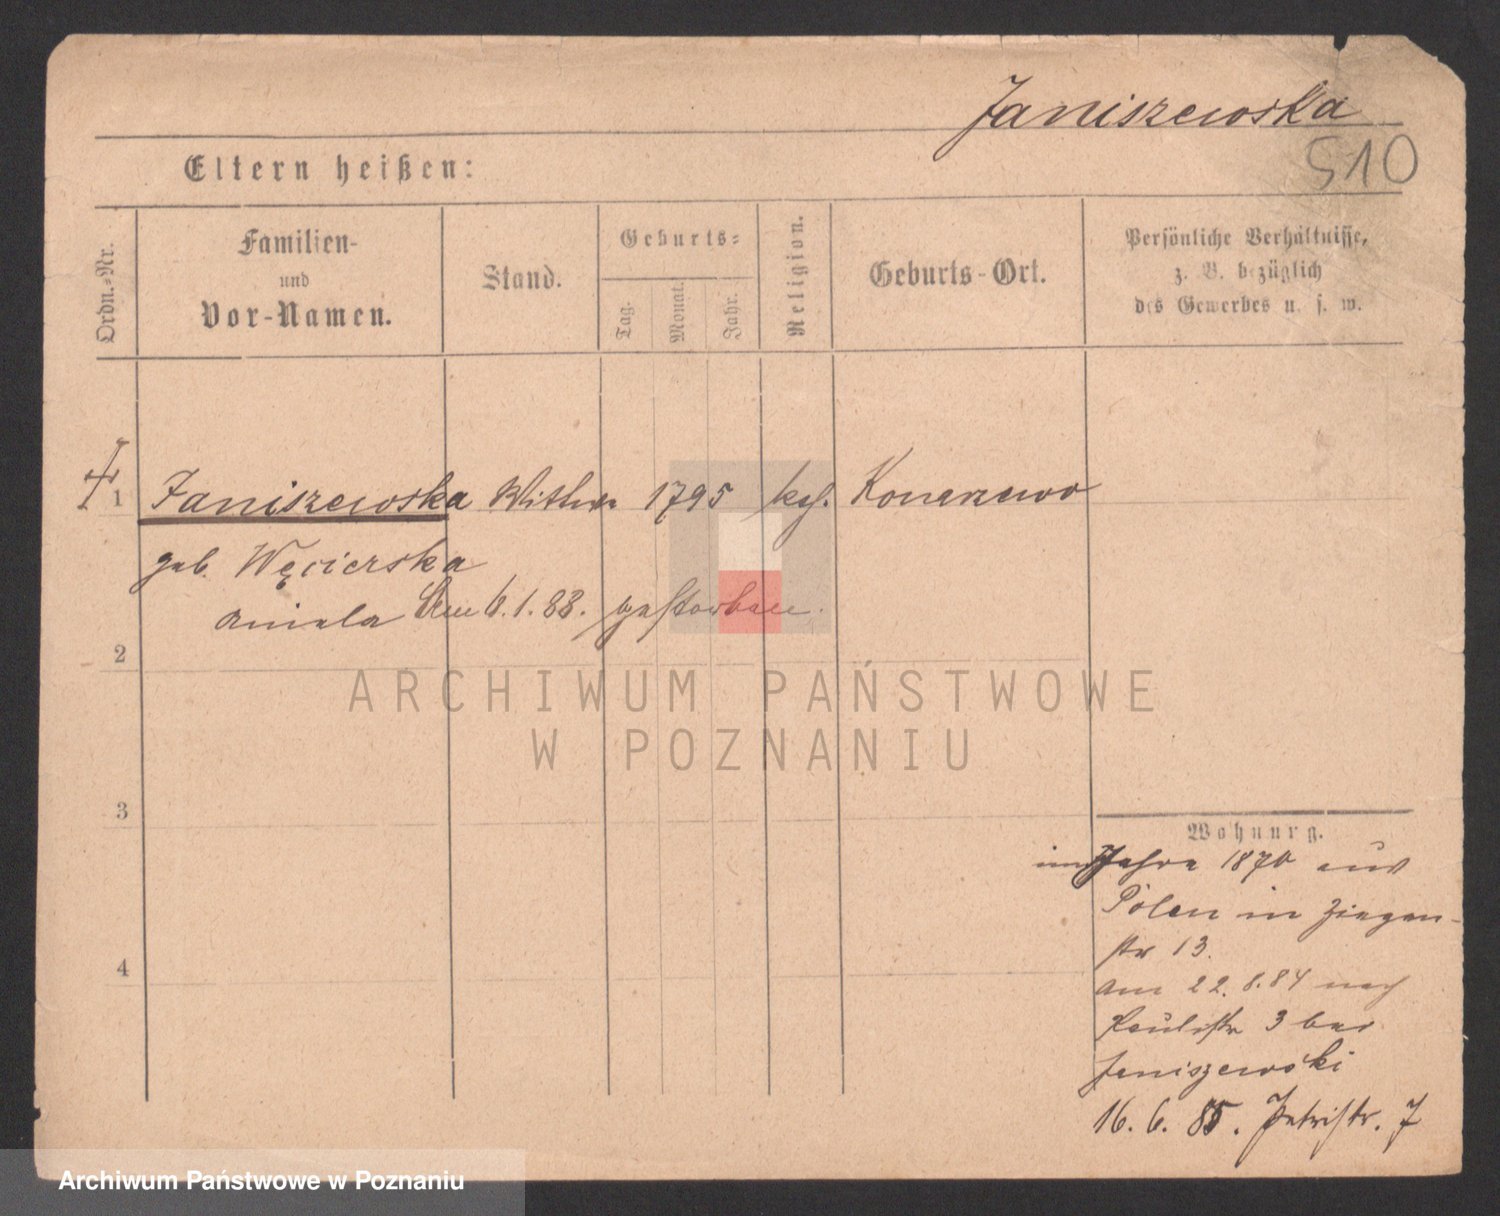 Janiszewska
510
Eltern heißen:
Ordn.-Nr.
Familien-
und
Vor-Namen.
Stand.
Geburts-
Tag.
Monat.
Jahr.
Religion.
Geburts-Ort.
Persönliche Verhältnisse,
z. B. bezüglich
des Gewerbes u. s. w.
1 Janiszewska Wittwe 1795 kath. Konarzewo
geb. Węcierska
Aniela Am 6.1.88. gestorben.
2
3
4
ARCHIWUM PAŃSTWOWE
W POZNANIU
Wohnung.
im Jahre 1870 aus
Polen in Ziegen-
str 13.
am 22.8.84 nach
Paulistr 3 bei
Janiszewski
16. 6. 85. Petristr. 7
Archiwum Państwowe w Poznaniu